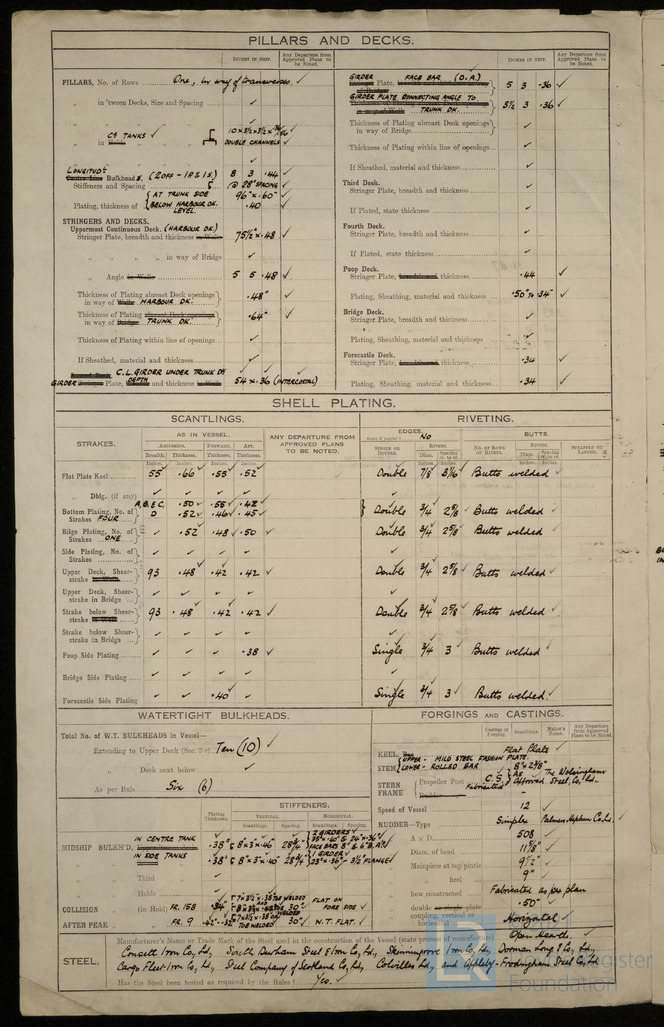 PILLARS AND DECKS.
INCHES IN SHIP.
Any Departure from Approved Plans to be Noted.
PILLARS, No. of Rows One, in way of transverses ✓
in 'tween Decks, Size and Spacing ✓
CR TANKS ✓
DOUBLE CHANNELS ✓
LONGITUDL
Bulkheads, (2 OFF - 1 P & 1 S.) 8 3 .44 ✓
Stiffeners and Spacing @ 28" SPACING ✓
AT TRUNK SIDE 96" x .60" ✓
Plating, thickness of BELOW HARBOUR DK. LEVEL. .40 ✓
STRINGERS AND DECKS.
Uppermost Continuous Deck. (HARBOUR DK.)
Stringer Plate, breadth and thickness in Wells 75½" x .48 ✓
" " " in way of Bridge ✓
" Angle in Wells 5 5 .48 ✓
Thickness of Plating abreast Deck openings in way of Wells HARBOUR DK. .48" ✓
Thickness of Plating abreast Deck openings in way of Bridge TRUNK DK. .64" ✓
Thickness of Plating within line of openings ✓
If Sheathed, material and thickness ✓
C.L. GIRDER UNDER TRUNK DK
GIRDER Plate, DEPTH and thickness in Wells 54 x .36 (INTERCOSTAL) ✓
INCHES IN SHIP.
Any Departure from Approved Plans to be Noted.
GIRDER Plate, FACE BAR (O.A.) 5 3 .36 ✓
GIRDER PLATE CONNECTING ANGLE TO TRUNK DK. 3½ 3 .36 ✓
Thickness of Plating abreast Deck openings in way of Bridge ✓
Thickness of Plating within line of openings ✓
If Sheathed, material and thickness ✓
Third Deck.
Stringer Plate, breadth and thickness ✓
If Plated, state thickness ✓
Fourth Deck.
Stringer Plate, breadth and thickness ✓
If Plated, state thickness ✓
Poop Deck.
Stringer Plate, breadth and thickness .44 ✓
Plating, Sheathing, material and thickness .50" to .34" ✓
Bridge Deck.
Stringer Plate, breadth and thickness ✓
Plating, Sheathing, material and thickness ✓
Forecastle Deck.
Stringer Plate, breadth and thickness .34 ✓
Plating, Sheathing, material and thickness .34 ✓
SHELL PLATING.
SCANTLINGS.
RIVETING.
STRAKES.
AS IN VESSEL.
ANY DEPARTURE FROM APPROVED PLANS TO BE NOTED.
EDGES. No
BUTTS.
AMIDSHIPS. FORWARD. AFT.
Breadth. Thickness. Thickness. Thickness.
SINGLE OR DOUBLE.
RIVETS.
No. of ROWS OF RIVETS.
RIVETS.
Flat Plate Keel 55 .66 .55 .52 Double 7/8 Butts welded
Dblg. (if any) ✓ ✓ ✓ ✓ ✓
A, B, & C, .50 .55 .42
Bottom Plating, No. of Strakes FOUR D .52 .46 .45 ✓ Double ¾ 2⅝ Butts welded
Bilge Plating, No. of Strakes ONE ✓ .52 .48 .50 Double ¾ 2⅝ Butts welded
Side Plating, No. of Strakes ✓ ✓ ✓ ✓ ✓
Upper Deck, Sheerstrake in Wells 93 .48 .42 .42 ✓ Double ¾ 2⅝ Butts welded ✓
Upper Deck, Sheerstrake in Bridge ✓ ✓ ✓ ✓ ✓
Strake below Sheerstrake in Wells 93 .48 .42 .42 ✓ Double ¾ 2⅝ Butts welded ✓
Strake below Sheerstrake in Bridge ✓ ✓ ✓ ✓ ✓
Poop Side Plating ✓ ✓ ✓ .38 ✓ Single ¾ 3 Butts welded ✓
Bridge Side Plating ✓ ✓ ✓ ✓ ✓
Forecastle Side Plating ✓ ✓ .40 ✓ Single ¾ 3 Butts welded ✓
WATERTIGHT BULKHEADS.
Total No. of W.T. BULKHEADS in Vessel—
Extending to Upper Deck Ten (10) ✓
" Deck next below ✓
As per Rule Six (6)
STIFFENERS.
Plating Thickness.
VERTICAL.
HORIZONTAL.
Scantlings. Spacing. Scantlings. Spacing.
MIDSHIP BULKH'D, IN CENTRE TANK .38" 8" x 3" x .46 28¾" 2 GIRDERS
IN SIDE TANKS .38" 8" x 3" x .40 28¾" 1 GIRDER
" Third ✓
" Holds ✓
COLLISION " (in Hold) FR. 158 .34 30" FLAT ON FORE SIDE ✓
AFTER PEAK " FR. 9 30" W.T. FLAT. ✓
FORGINGS AND CASTINGS.
Casting or Forging. Scantlings. Maker's Name. Any Departure from Approved Plans to be Noted.
KEEL, Bar Flat Plate ✓
STEM UPPER - MILD STEEL FASHION PLATE.
LOWER - ROLLED BAR
STERN FRAME
Propeller Post C.S. Fabricated AS Approved The Wolsingham Steel Co., Ltd.
Rudder " –
Speed of Vessel 12
RUDDER—Type Simplex Palmers Hepburn Co. Ld.
" A × D 508
" Diam. of head 11⅝" ✓
" Mainpiece at top pintle 9½" ✓
" " heel 9" ✓
" how constructed Fabricated as per plan
" double or single plate .50" ✓
" coupling, vertical or horizontal Horizontal ✓
STEEL.
Manufacturer's Name or Trade Mark of the Steel used in the construction of the Vessel (state process of manufacture) Open Hearth.
Consett Iron Co., Ld., South Durham Steel & Iron Co., Ld., Skinningrove Iron Co., Ld., Dorman Long & Co., Ld.,
Cargo Fleet Iron Co., Ld., Steel Company of Scotland Co., Ld., Colvilles Ld., and Appleby-Frodingham Steel Co., Ld.
Has the Steel been tested as required by the Rules? Yes. ✓
Foundation